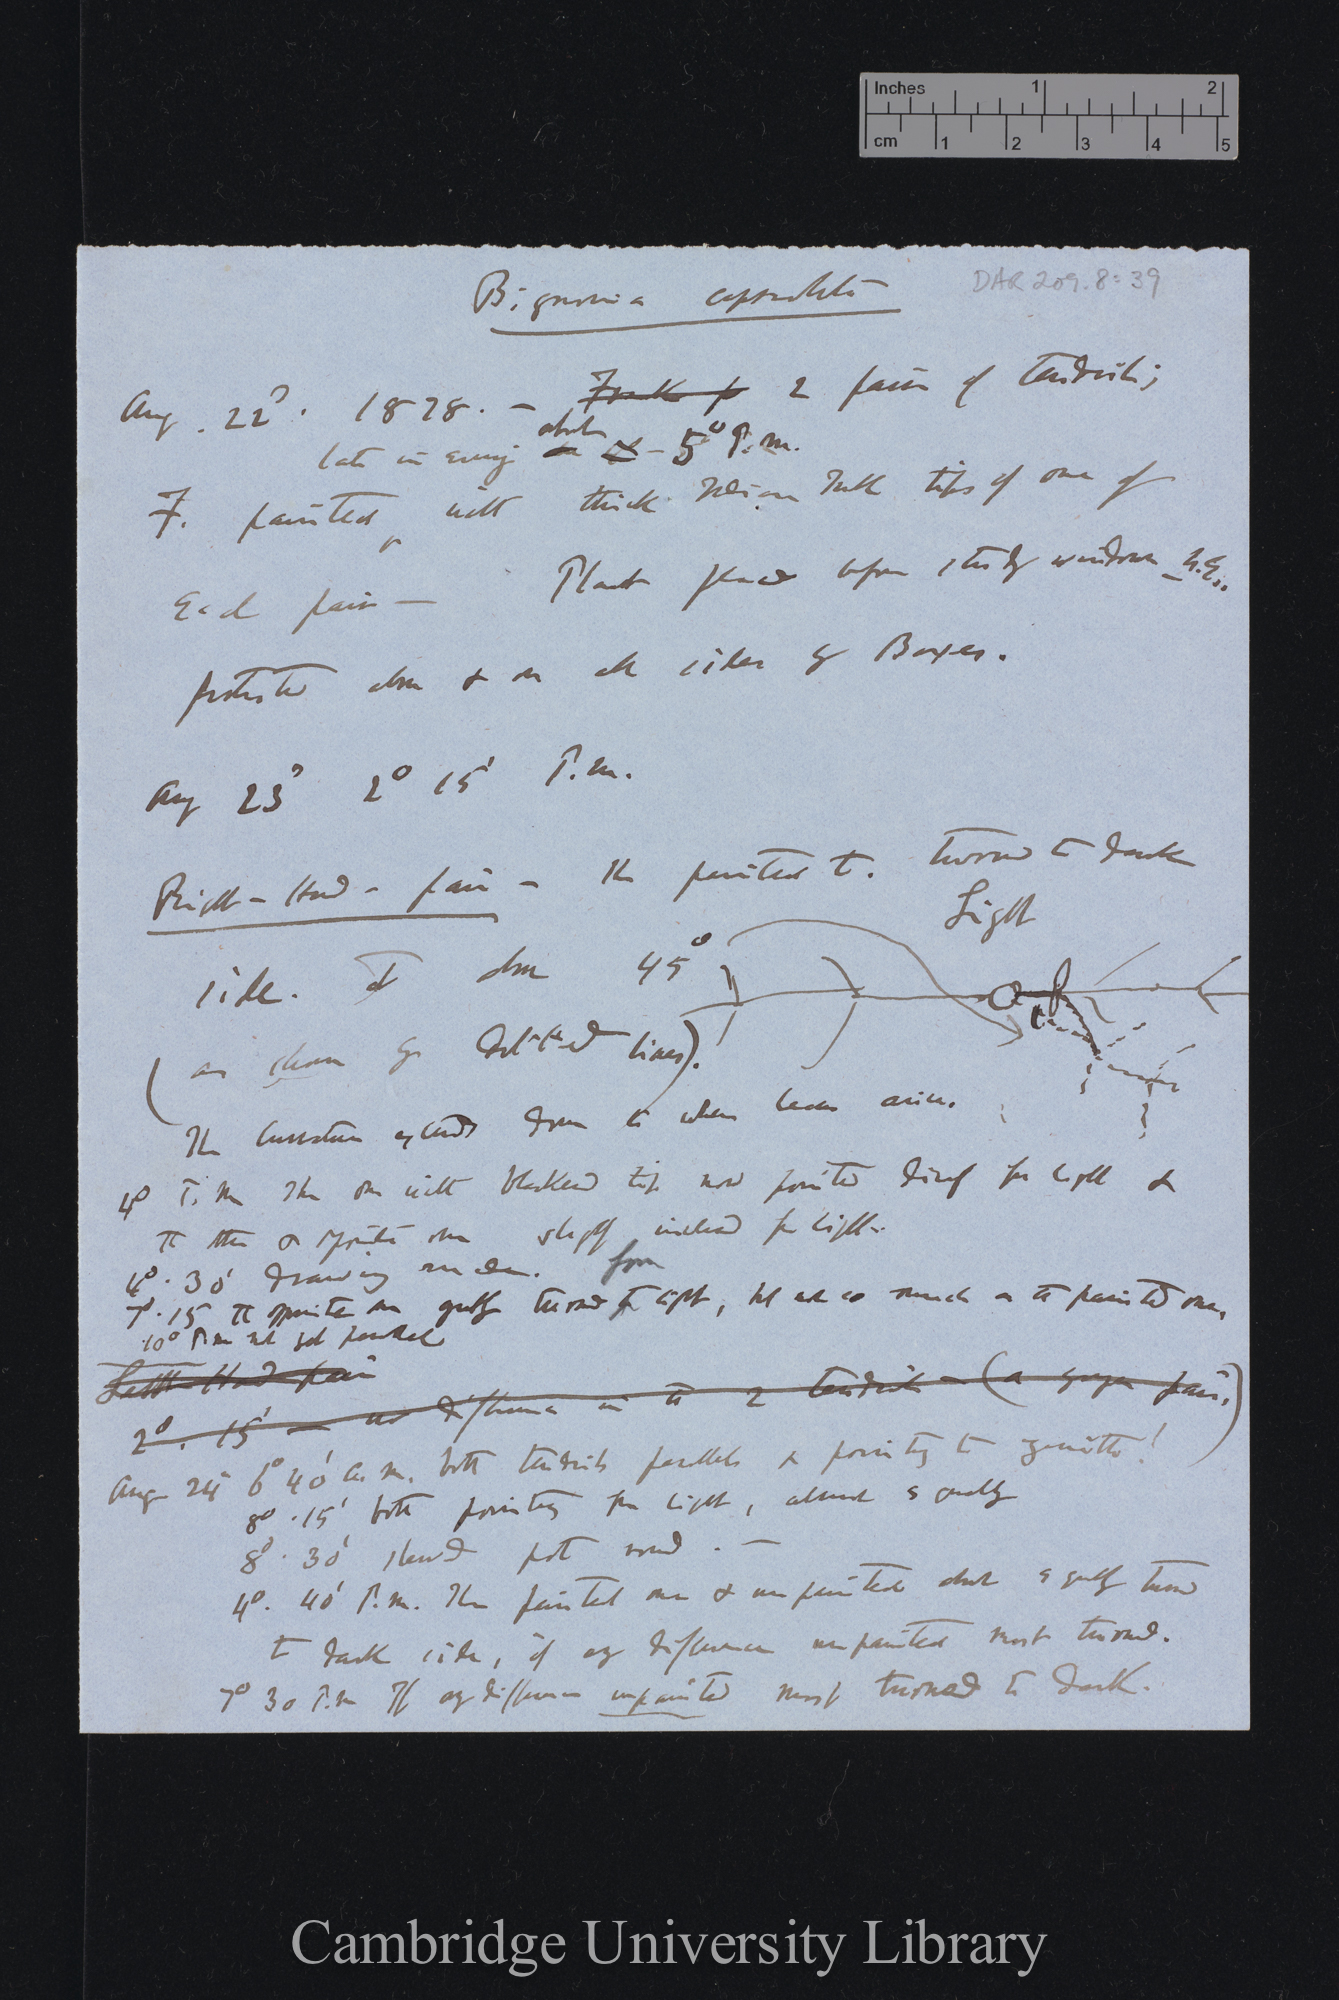 Inches 1 2
cm 1 2 3 4 5
DAR 209.8:39
Bignonia capreolata
Aug. 22d. 1878. — Frank p 2 pairs of tendrils;
late in evening about 5° P.m.
F. painted, with thick Indian Ink tips of one of
Each pair — Plant placed before study window N.E.,
protected above & on all sides by Boxes.
Aug 23d 2° 15' P.m.
Right-Hand-pair — The painted t. turned to dark
Light
side. to above 45°
(as shown by dotted lines).
The curvature extends down to where leaves arise.
4° P.m The one with blackened tip now points directly from light &
the other or opposite one slightly inclined from light.
4°. 30' Drawing made. from
7°. 15 the opposite one greatly turned from light, but not so much as the painted one,
10° P.m not yet parallel
Left-Hand pair
2°. 15' — no difference in the 2 tendrils — (a younger pair.)
Aug 24 6° 40' a.m. both tendrils parallel & pointing to zenith!
8°. 15' both pointing from light, almost equally
8°. 30' slewed pot round. —
4°. 40' P.m. The painted one & unpainted about equally turned
to dark side, if any difference unpainted most turned.
7° 30 P.m If any difference unpainted most turned to dark.
Cambridge University Library